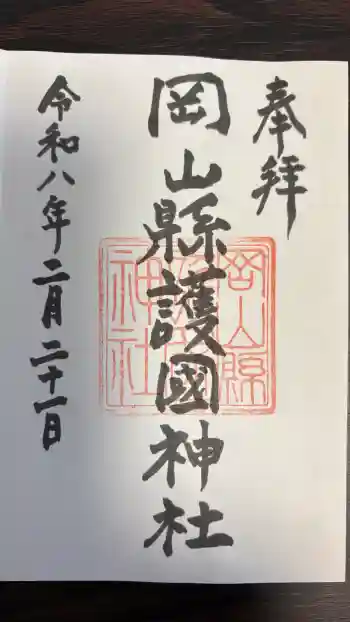 奉拝
岡山縣護國神社
岡山縣
護國
神社
令和八年二月二十一日